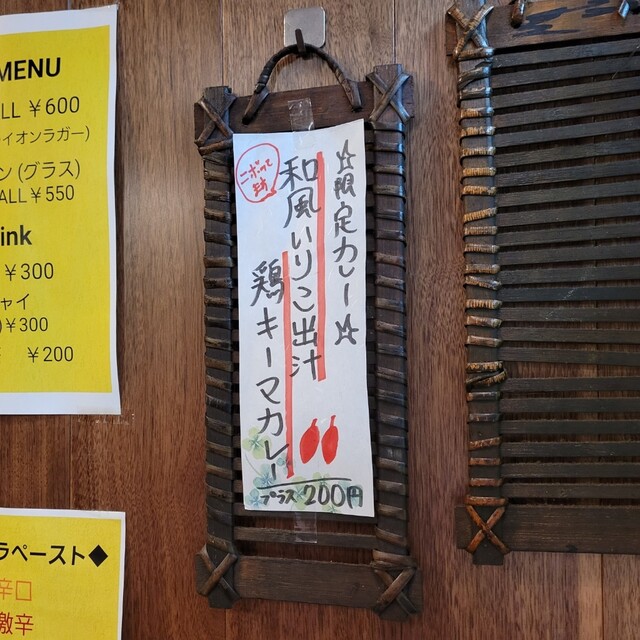 MENU
LL ￥600
イオンラガー)
ン (グラス)
ALL￥550
ink
￥300
ャイ
)￥300
￥200
ラペースト◆
辛口
激辛
☆限定カレー☆
和風いりこ出汁
鶏キーマカレー
プラス 200円